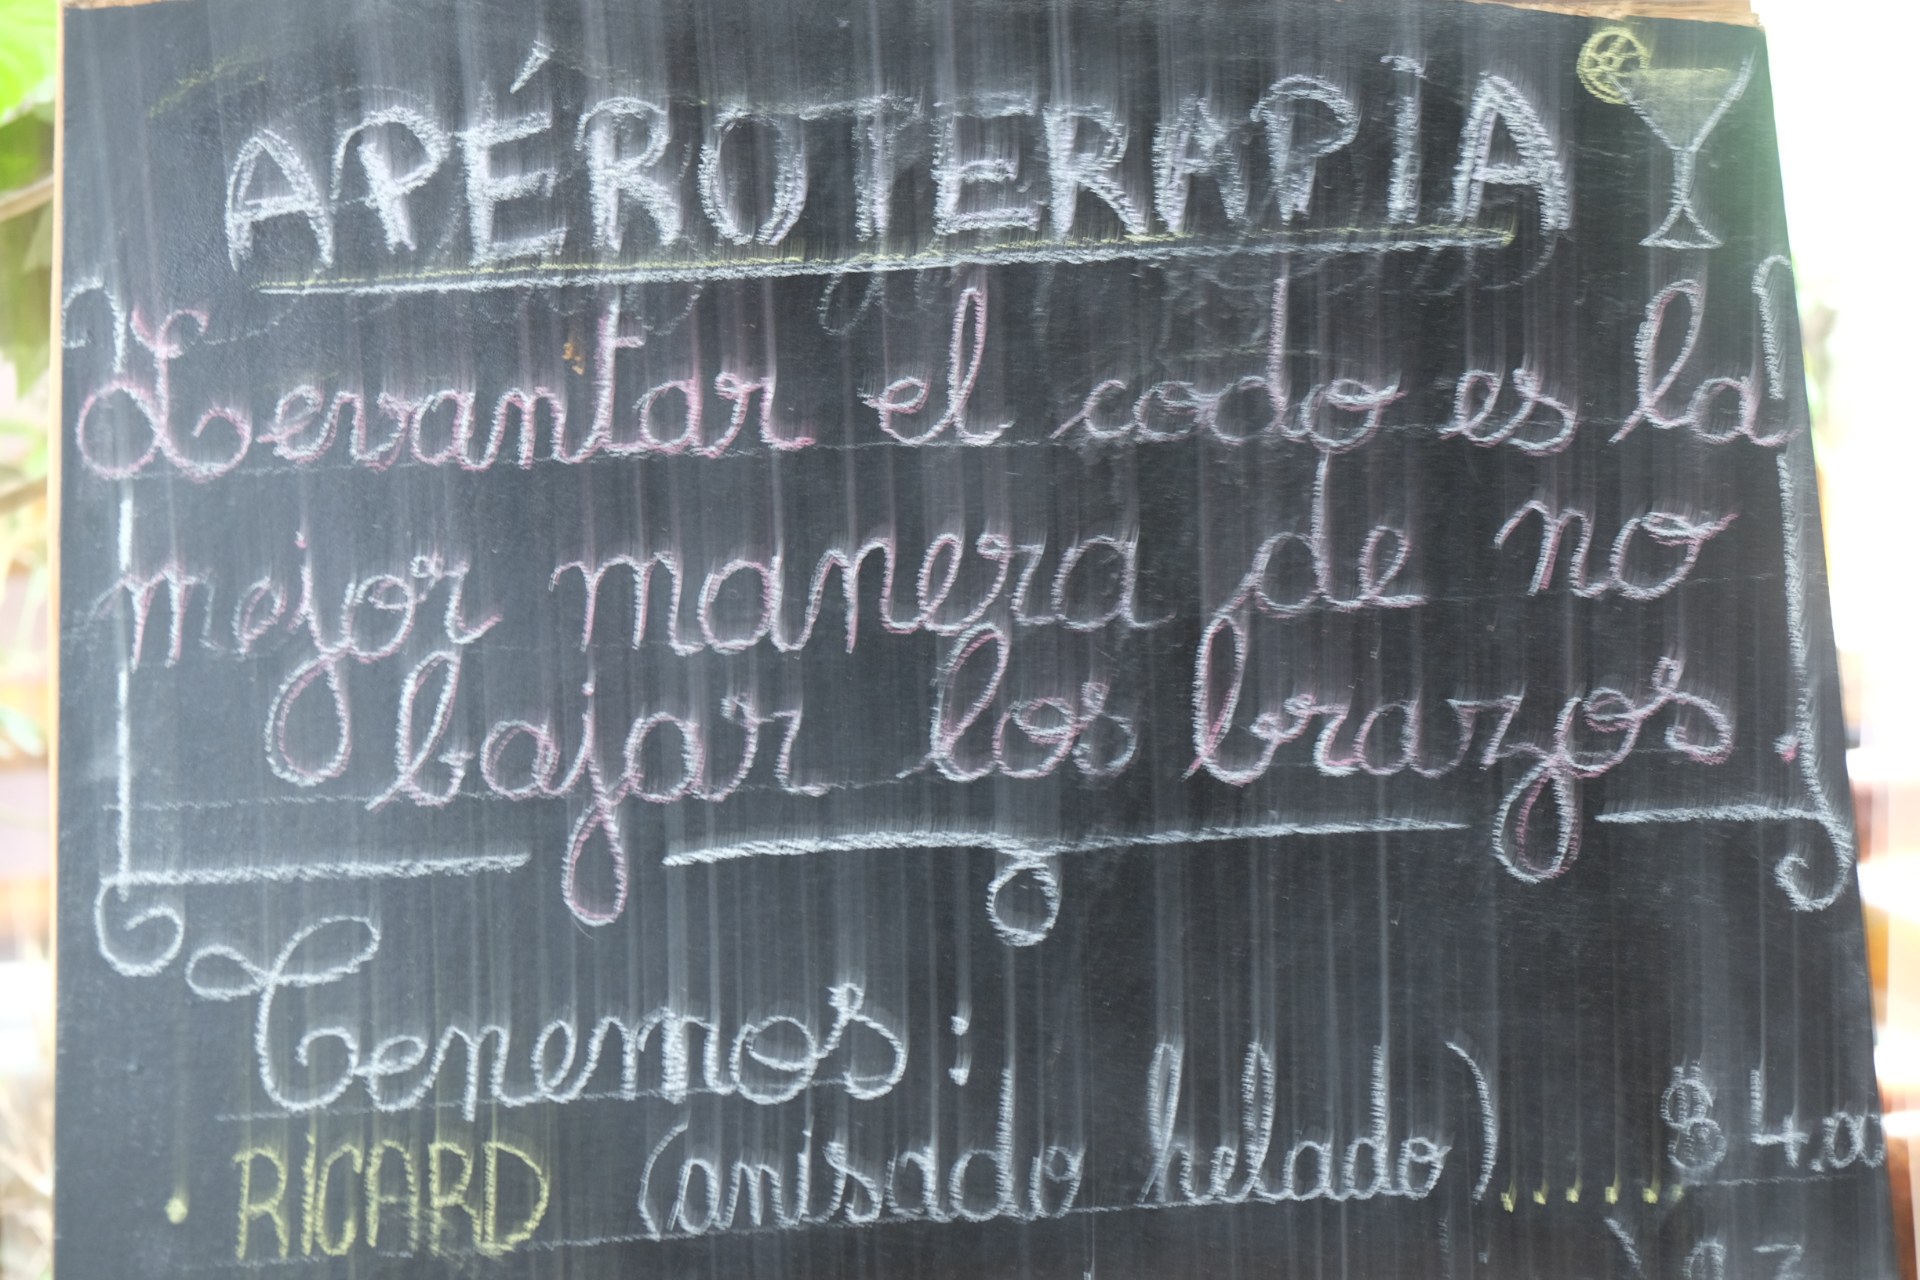 APÉROTERAPIA
Levantar el codo es la
mejor manera de no
bajar los brazos.
Tenemos:
• RICARD (anisado helado)..... $4.00